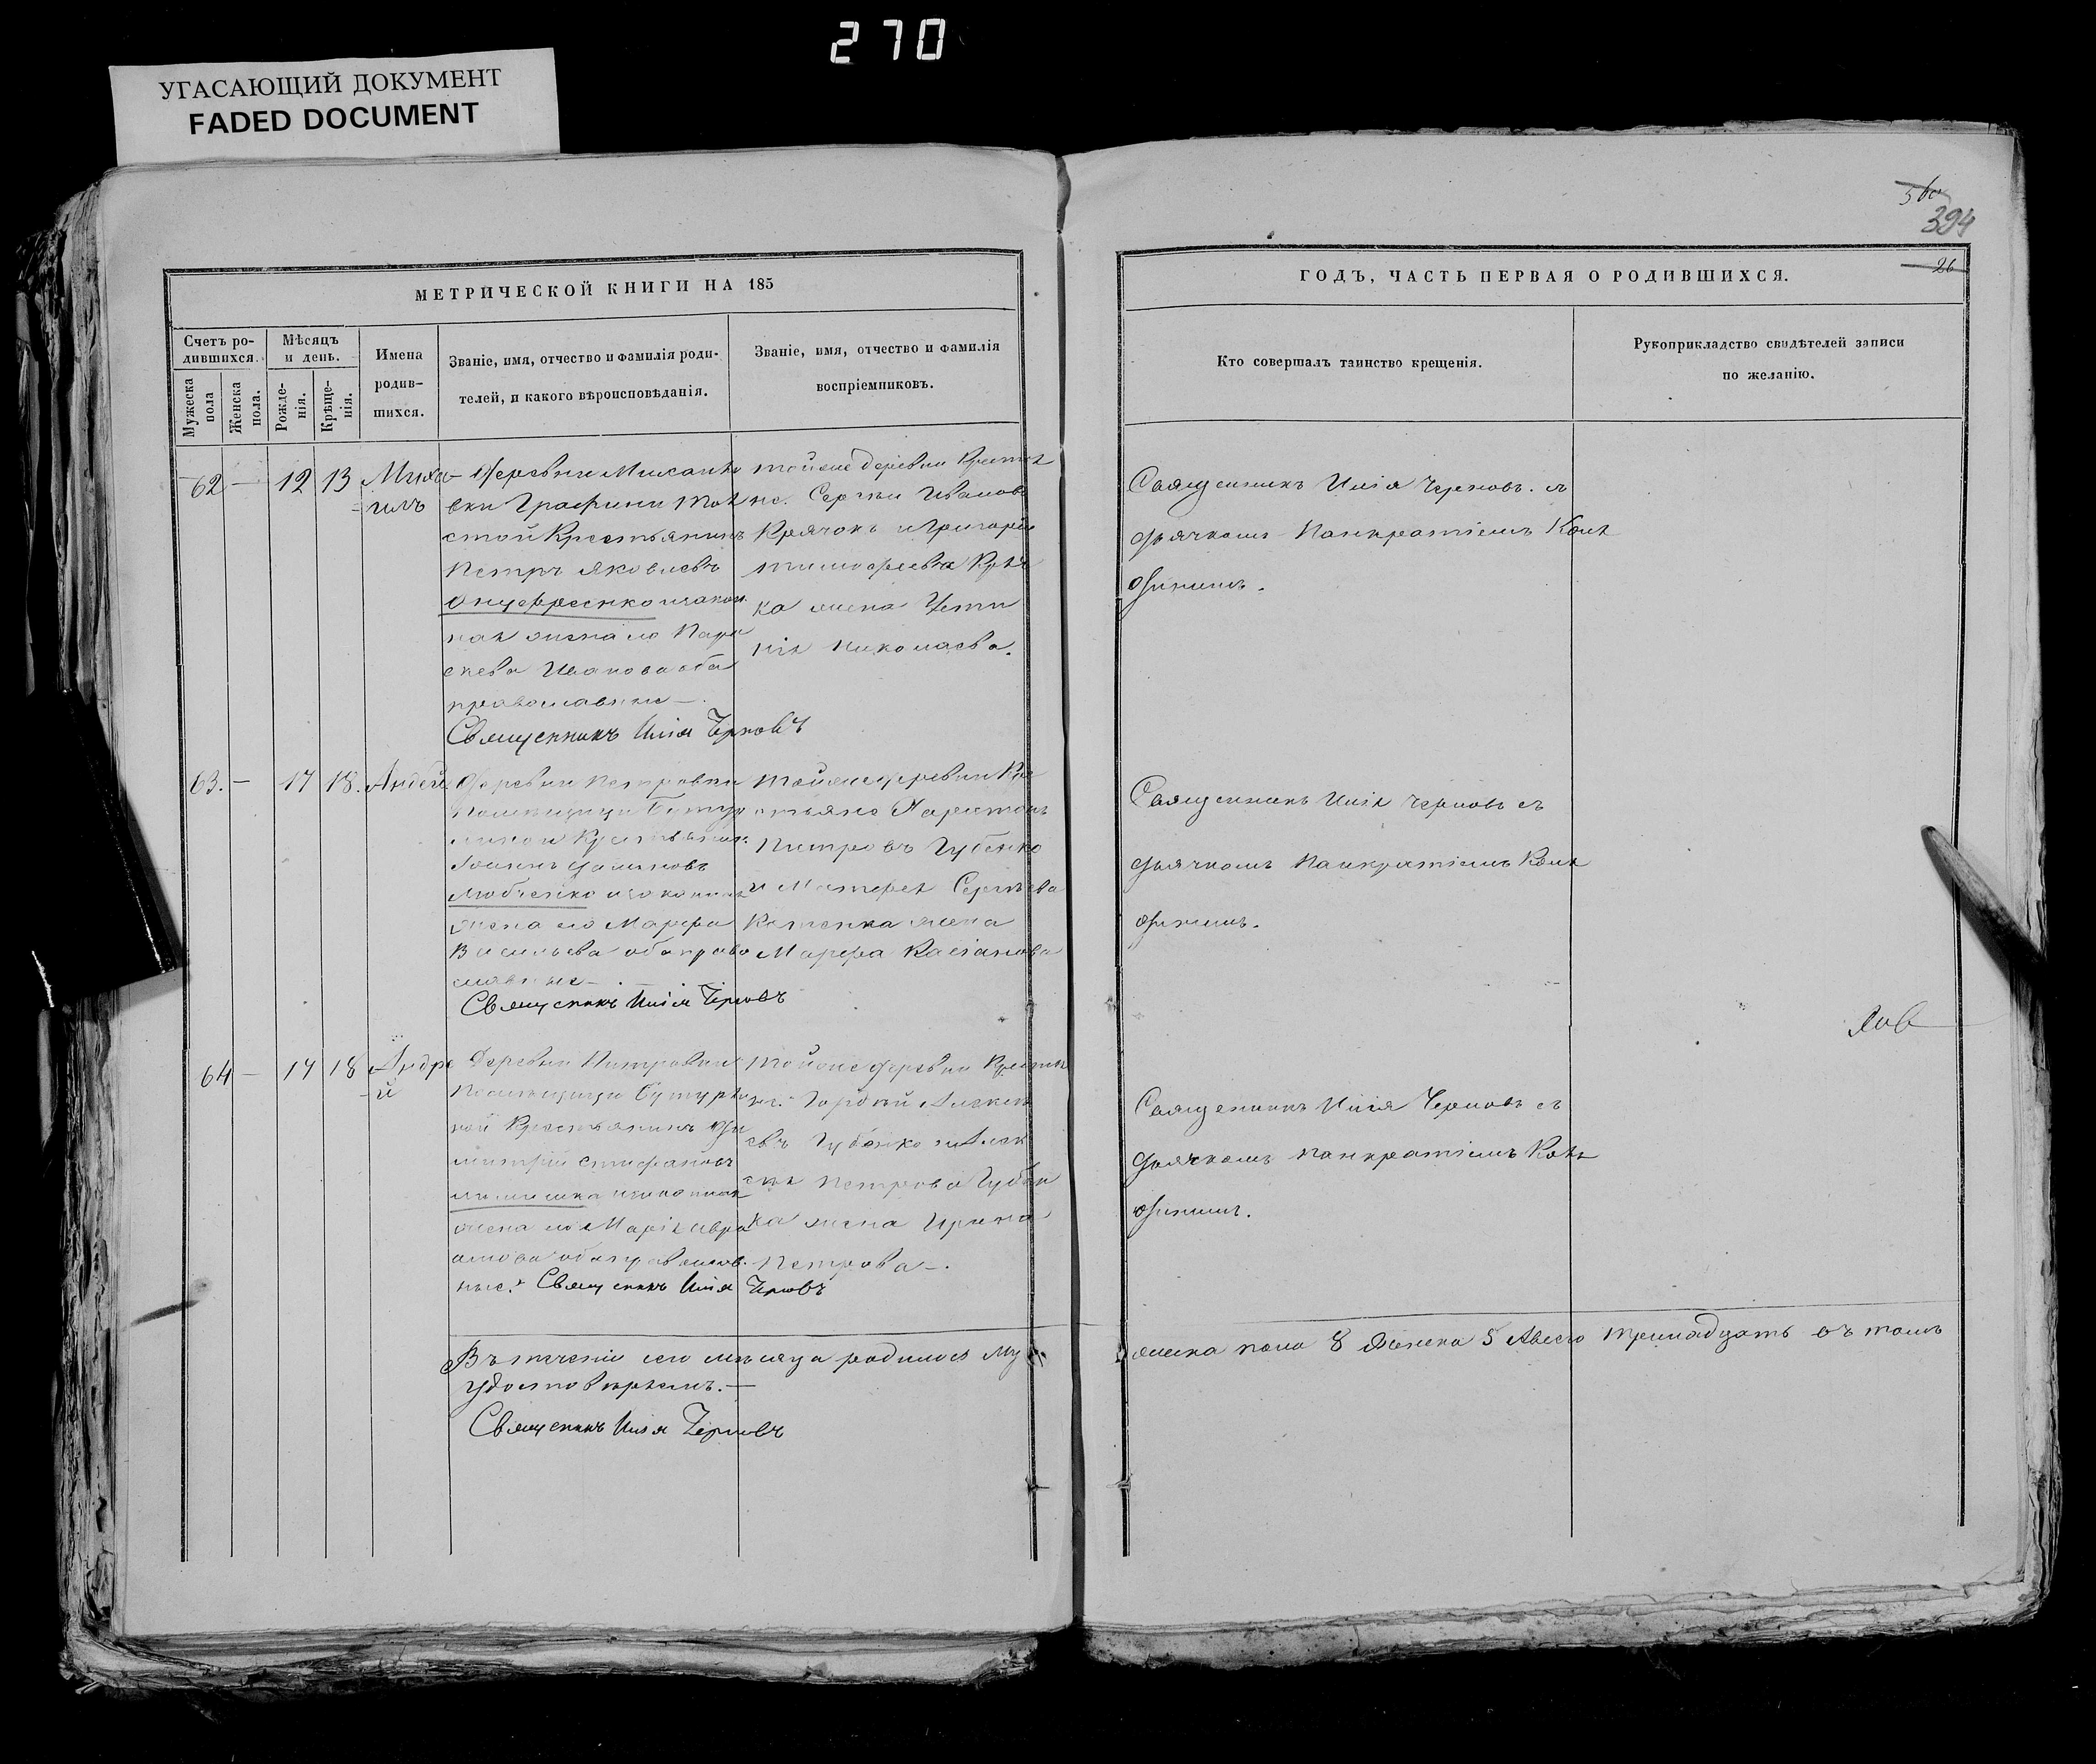 270
УГАСАЮЩИЙ ДОКУМЕНТ
FADED DOCUMENT
394
26
МЕТРИЧЕСКОЙ КНИГИ НА 185
Счетъ ро-
дившихся.
Мужеска
пола
Женска
пола.
Мѣсяцъ
и день.
Рожде-
нія.
Креще-
нія.
Имена
родив-
шихся.
Званіе, имя, отчество и фамилія роди-
телей, и какого вѣроисповѣданія.
Званіе, имя, отчество и фамилія
воспріемниковъ.
ГОДЪ, ЧАСТЬ ПЕРВАЯ О РОДИВШИХСЯ.
Кто совершалъ таинство крещенія.
Рукоприкладство свидѣтелей записи
по желанію.
62 — 12 13 Миха-
илъ
Деревни Михайло
вки Графини Тол
стой Крестьянинъ
Петръ Яковлевъ
Онуфреенко и закон
ная жена его Пара
скева Иванова оба
православные —.
Священникъ Илія Черновъ
тойже деревни Кресть
не. Сергѣй Ивановъ
Крячокъ и Григорія
Тимофеева
ка жена Усти
нія Николаева.
Священникъ Илія Черновъ. съ
дьячкомъ Панкратіемъ
63. — 17 18. Андрей
Деревни Петровки
Помѣщицы Бутур
линой Крестьянинъ
Іоаннъ
Любченко и законная
жена его Марфа
Васильева оба право
славные —.
Священникъ Илія Черновъ
тойже деревни Кре
стьяне Харитонъ
Петровъ Губенко
и Матфея Сергѣева
жена
Марфа Касіанова
Священникъ Илія Черновъ съ
дьячкомъ Панкратіемъ
64 — 17 18 Андре
й
Деревни Петровки
Помѣщицы Бутурли
ной Крестьянинъ Ди
митрій Стефановъ
и законная
жена его Марія Авра
амова оба православ
ные. Священникъ Илія Черновъ
тойже деревни Кресть
не: Гордѣй Алексѣ
евъ Губенко и Алек
сѣя Петрова Губен
ка жена Ирина
Петрова —.
Священникъ Илія Черновъ съ
дьячкомъ Панкратіемъ
Въ теченіи сего мѣсяца родилось му жеска пола 8 Женска 5 Авсего тринадцать въ томъ
удостовѣряемъ. —
Священникъ Илія Черновъ